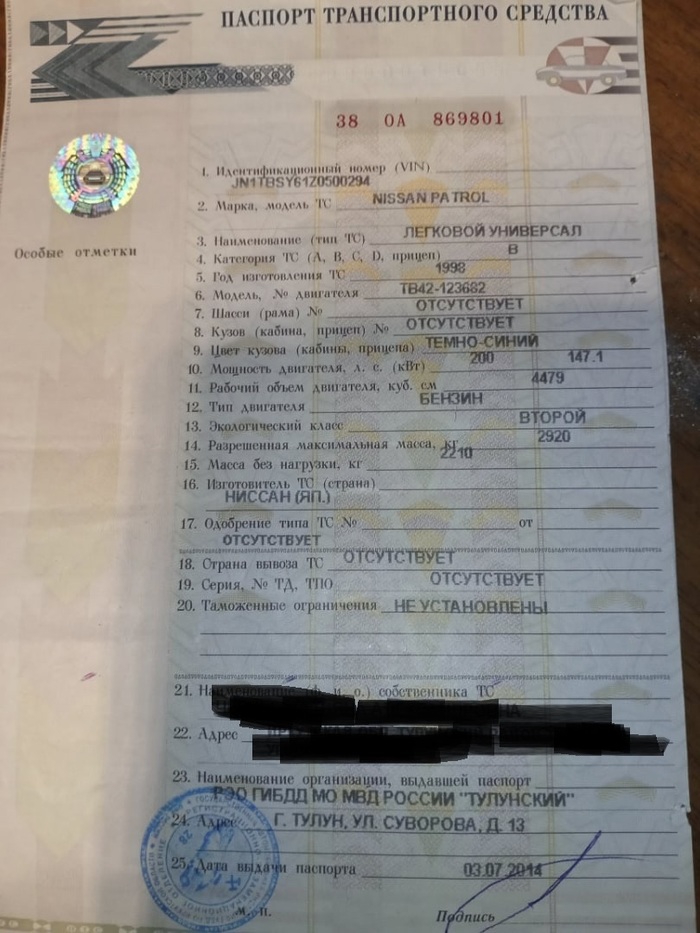 ПАСПОРТ ТРАНСПОРТНОГО СРЕДСТВА
38 ОА 869801
Особые отметки
1. Идентификационный номер (VIN)
JN1TBSY61Z0500294
2. Марка, модель ТС NISSAN PATROL
3. Наименование (тип ТС) ЛЕГКОВОЙ УНИВЕРСАЛ
4. Категория ТС (A, B, C, D, прицеп) B
5. Год изготовления ТС 1998
6. Модель, № двигателя TB42-123682
7. Шасси (рама) № ОТСУТСТВУЕТ
8. Кузов (кабина, прицеп) № ОТСУТСТВУЕТ
9. Цвет кузова (кабины, прицепа) ТЕМНО-СИНИЙ
10. Мощность двигателя, л. с. (кВт) 200 147.1
11. Рабочий объем двигателя, куб. см 4479
12. Тип двигателя БЕНЗИН
13. Экологический класс ВТОРОЙ
14. Разрешенная максимальная масса, кг 2920
15. Масса без нагрузки, кг 2210
16. Изготовитель ТС (страна)
НИССАН (ЯП.)
17. Одобрение типа ТС № от
ОТСУТСТВУЕТ
18. Страна вывоза ТС ОТСУТСТВУЕТ
19. Серия, № ТД, ТПО ОТСУТСТВУЕТ
20. Таможенные ограничения НЕ УСТАНОВЛЕНЫ
21. Наименование (ф. и. о.) собственника ТС
22. Адрес
23. Наименование организации, выдавшей паспорт
РЭО ГИБДД МО МВД РОССИИ "ТУЛУНСКИЙ"
24. Адрес Г. ТУЛУН, УЛ. СУВОРОВА, Д. 13
25. Дата выдачи паспорта 03.07.2014
М. П. Подпись